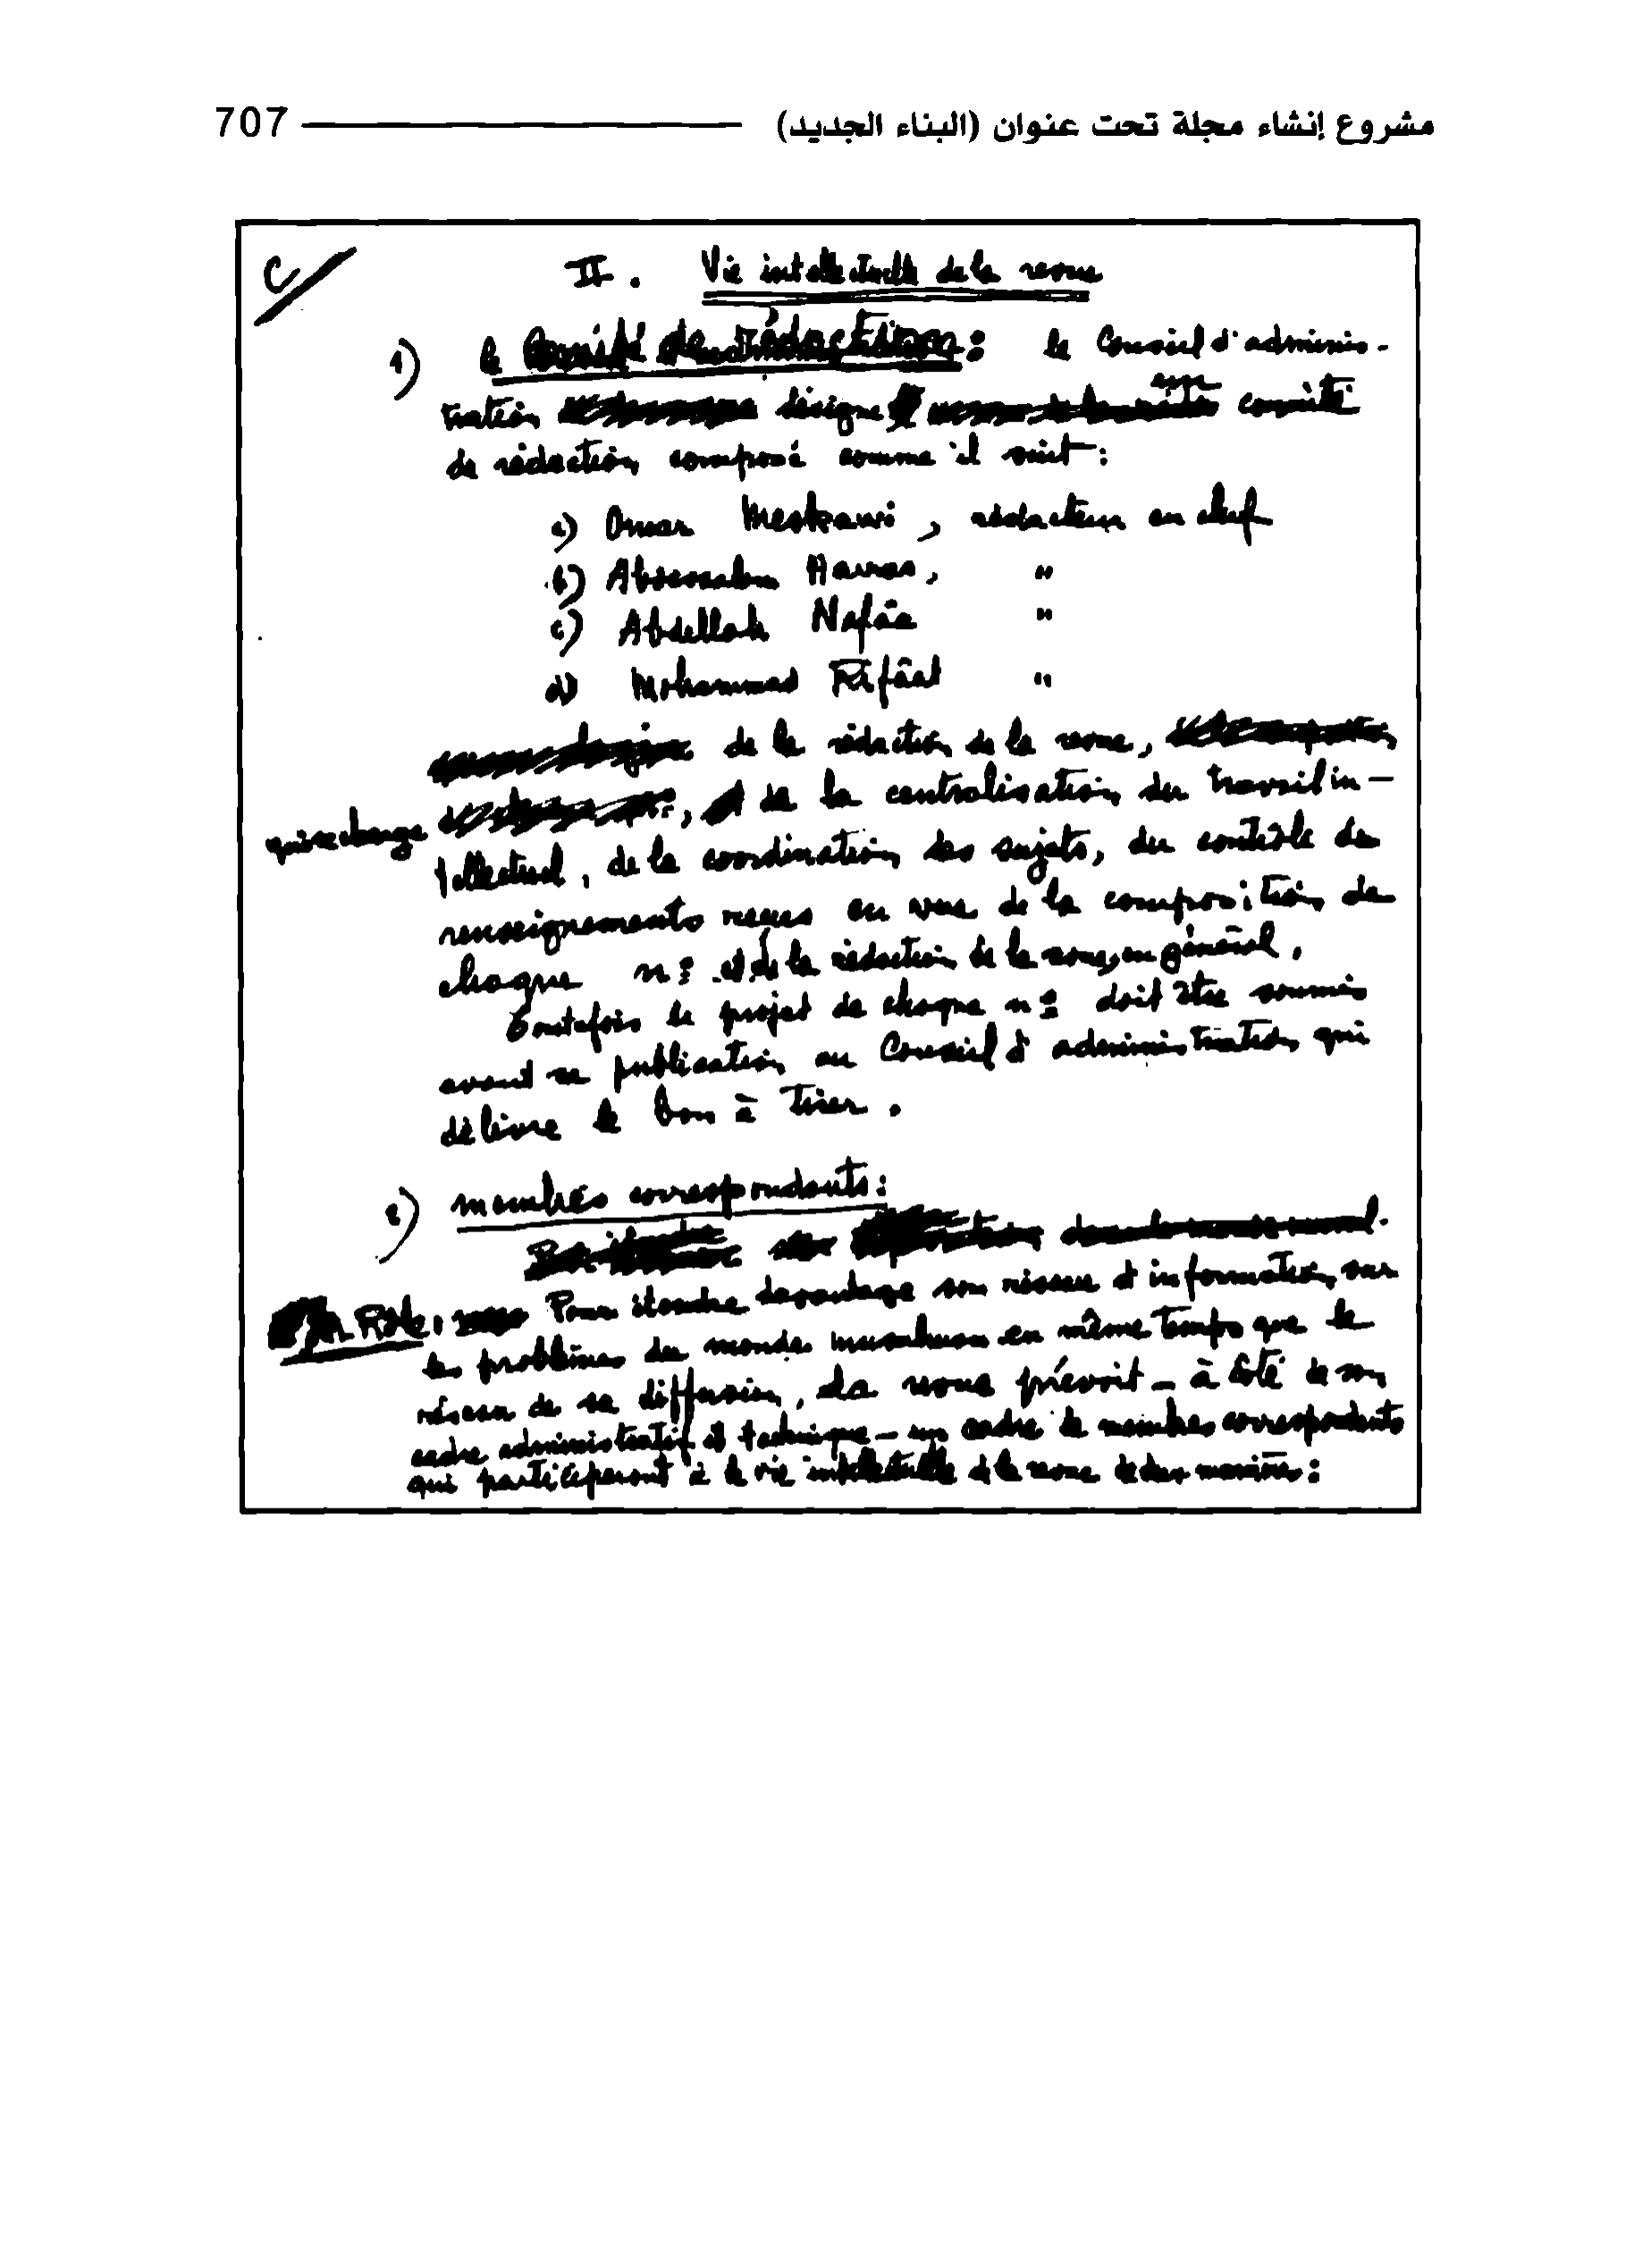 مشروع إنشاء مجلة تحت عنوان (البناء الجديد) 707
C/
II. Vie intellectuelle de la revue
1) le Comité de rédaction : le Conseil d'adminis-
tration désigne un comité
de rédaction composé comme il suit :
a) Omar Meskawi, rédacteur en chef
b) Abdessalem Harras, "
c) Abdellah Nafâa "
d) Mohammad Rifâat "
de la rédaction de la revue,
qui se charge , de la centralisation du travail in-
tellectuel, de la coordination des sujets, du contrôle de
renseignements reçus en vue de la composition de
chaque nº et de la rédaction de la revue, en général.
Toutefois le projet de chaque nº doit être soumis
avant sa publication au Conseil d'administration qui
délivre le bon à tirer.
2) membres correspondants :
Rôle, Pour étendre davantage son réseau d'information, sur
les problèmes du monde musulman en même temps que le
réseau de sa diffusion, la revue prévoit - à côté de son
cadre administratif et technique - un cadre de membres correspondants
qui participeront à la vie intellectuelle de la revue de deux manières :